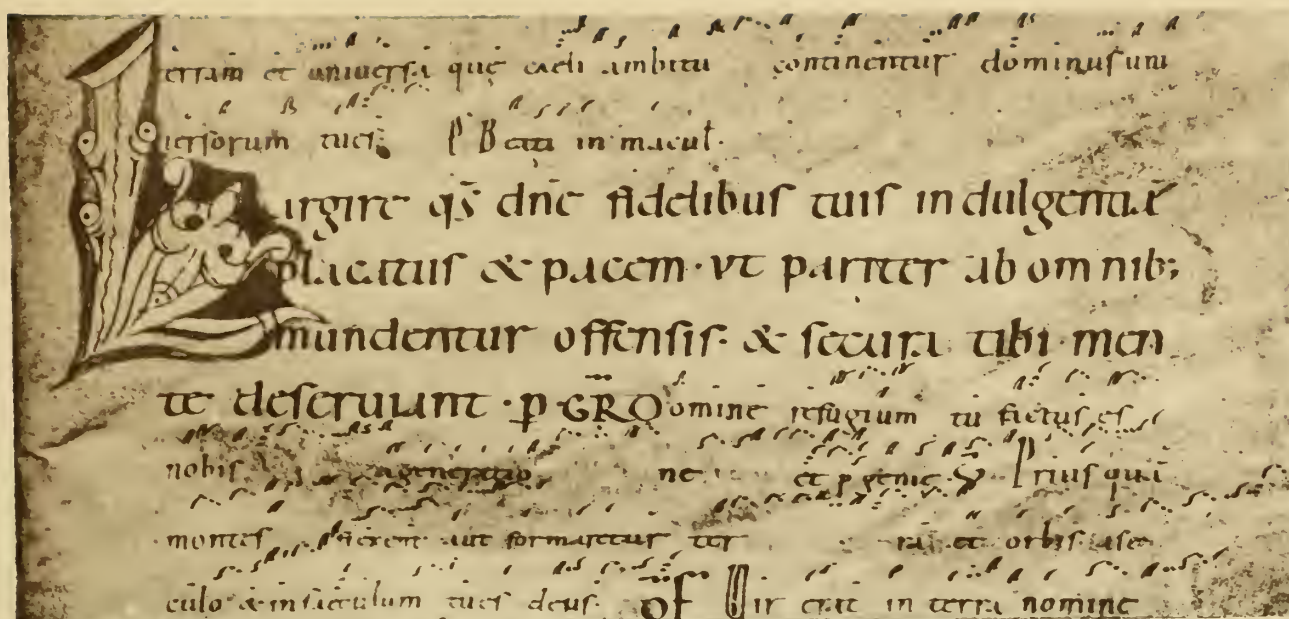 terram et uniuersa quę caeli ambitu continentur dominus uni
uersorum tu es. Ps Beati in macul.
Largire qs dnē fidelibus tuis indulgentiā
placatus & pacem · ut pariter ab omnib;
mundentur offensis · & secura tibi men
te deseruiant · p GR Domine refugium tu factus es
nobis a generatio ne et p genie V Priusquā
montes fierent aut formaretur ter ra et orbis a se
culo & in saeculum tu es deus · OF Vir erat in terra nomine